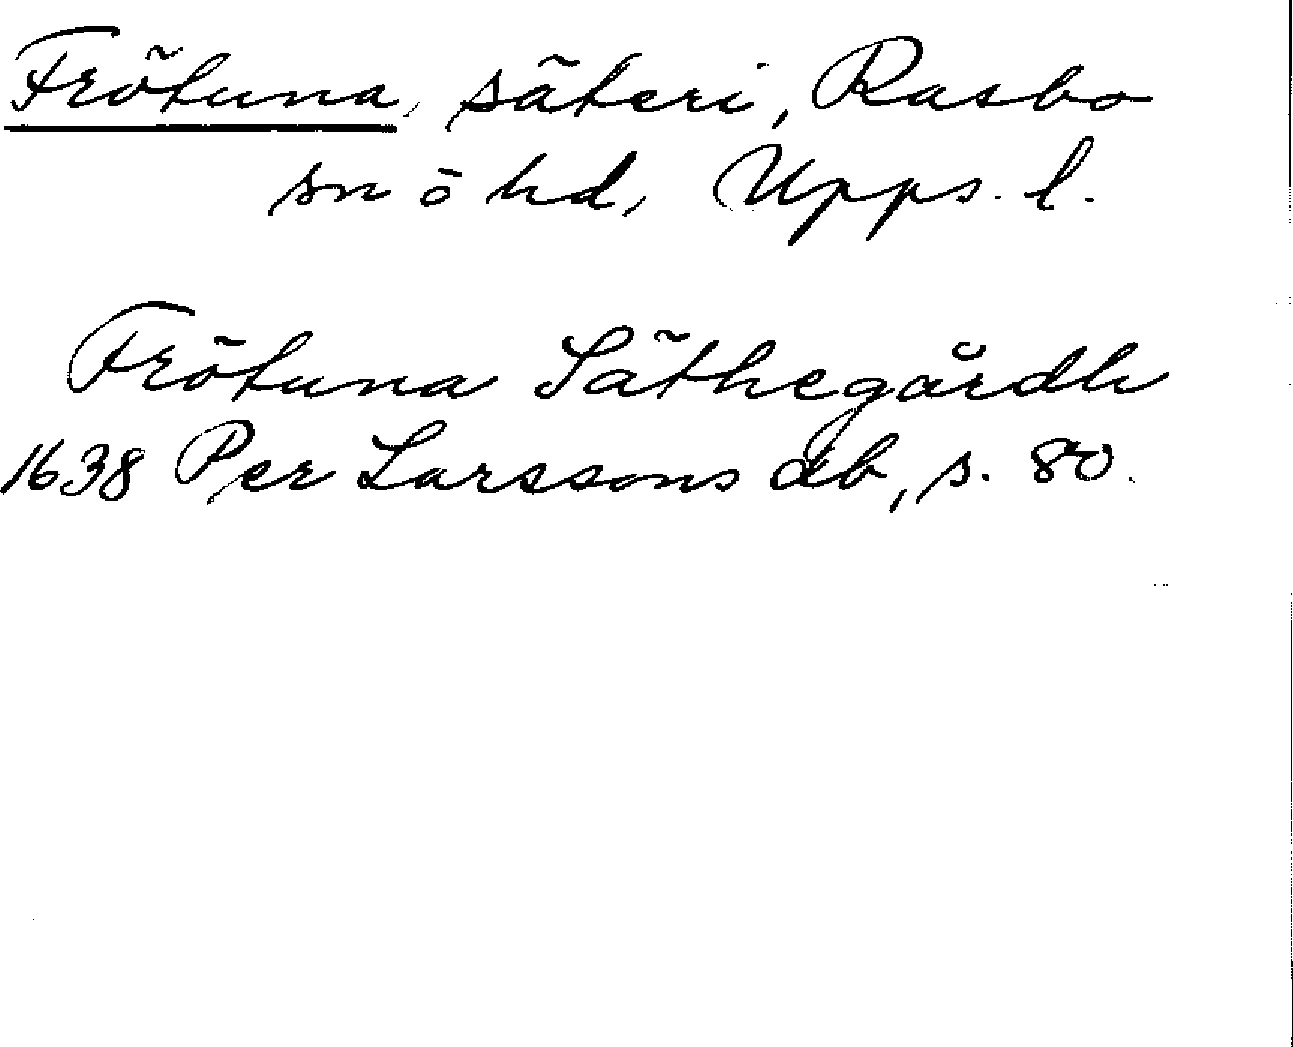 Frötuna, säteri, Rasbo
sn o hd, Upps. l.
Frötuna Säthegårdh
1638 Per Larssons db, s. 80.